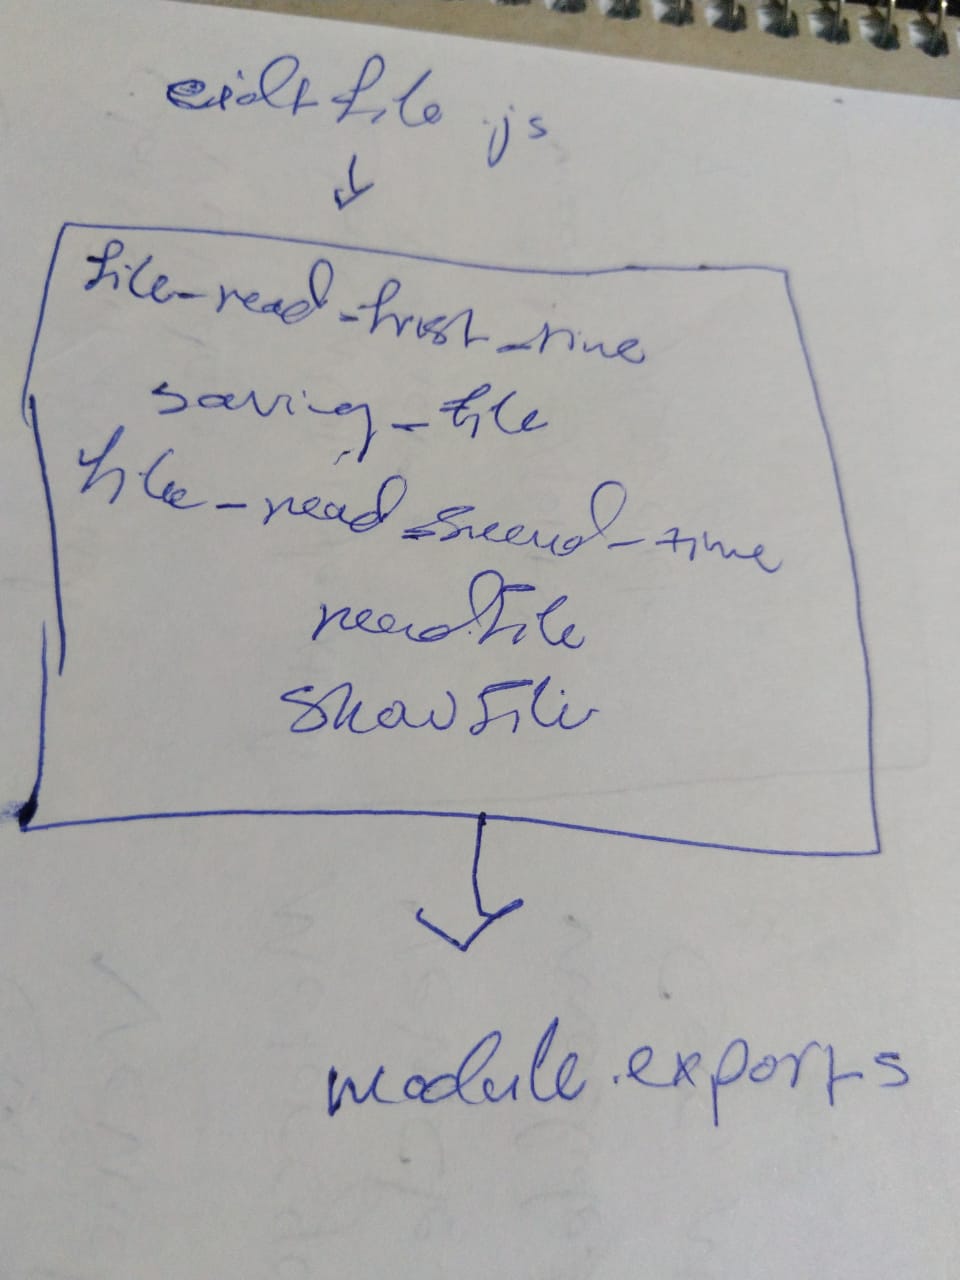 eidt file .js
file-read-frist-time
saving-file
file-read-second-time
readFile
showFile
module.exports